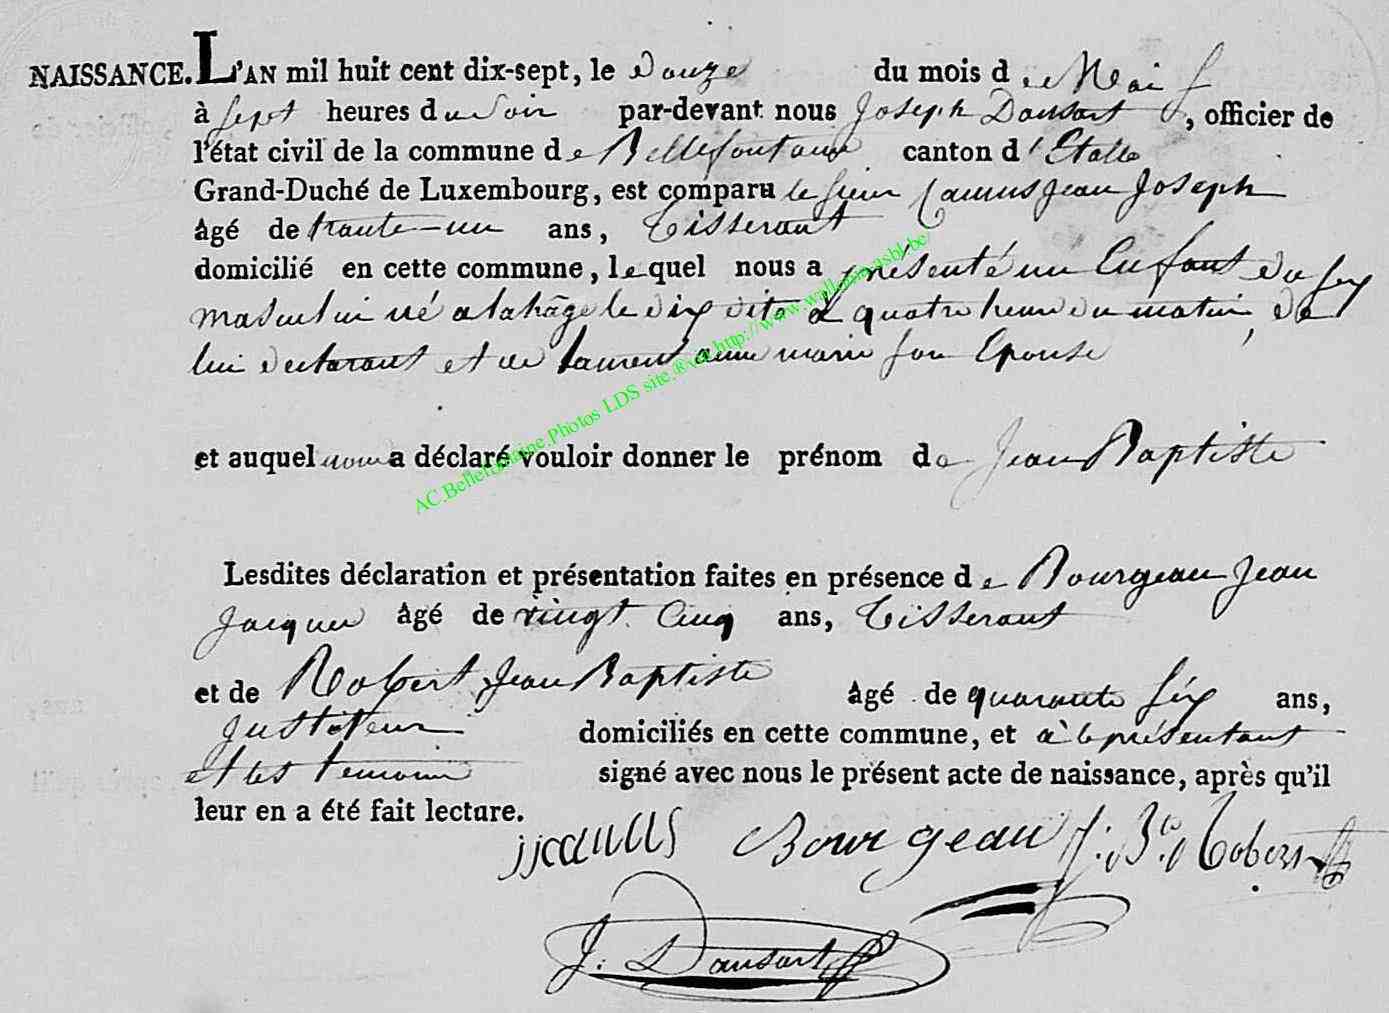 NAISSANCE. L'AN mil huit cent dix-sept, le Douze du mois de Mai
à sept heures du soir par-devant nous Joseph Dansart, officier de
l'état civil de la commune de Bellefontaine canton d'Etalle
Grand-Duché de Luxembourg, est comparu le sieur Camus Jean Joseph
âgé de trante-un ans, Tisserant
domicilié en cette commune, lequel nous a présenté un Enfant du sex
masculin né a lahâge le dix dito à quatre heure du matin, de
lui declarant et de laurent anne marie son Epouse
et auquel nous a déclaré vouloir donner le prénom de Jean Baptiste
Lesdites déclaration et présentation faites en présence de Bourgeau Jean
Jacques âgé de vingt Cinq ans, Tisserant
et de Robert Jean Baptiste âgé de quarante six ans,
Justiteur domiciliés en cette commune, et à le présentant
et les temoins signé avec nous le présent acte de naissance, après qu'il
leur en a été fait lecture.
jjcamus Bourgeau J. Bte Robert
J. Dansart
AC.Bellefontaine.Photos LDS site ® via http://www.wallonia.asbl.be/